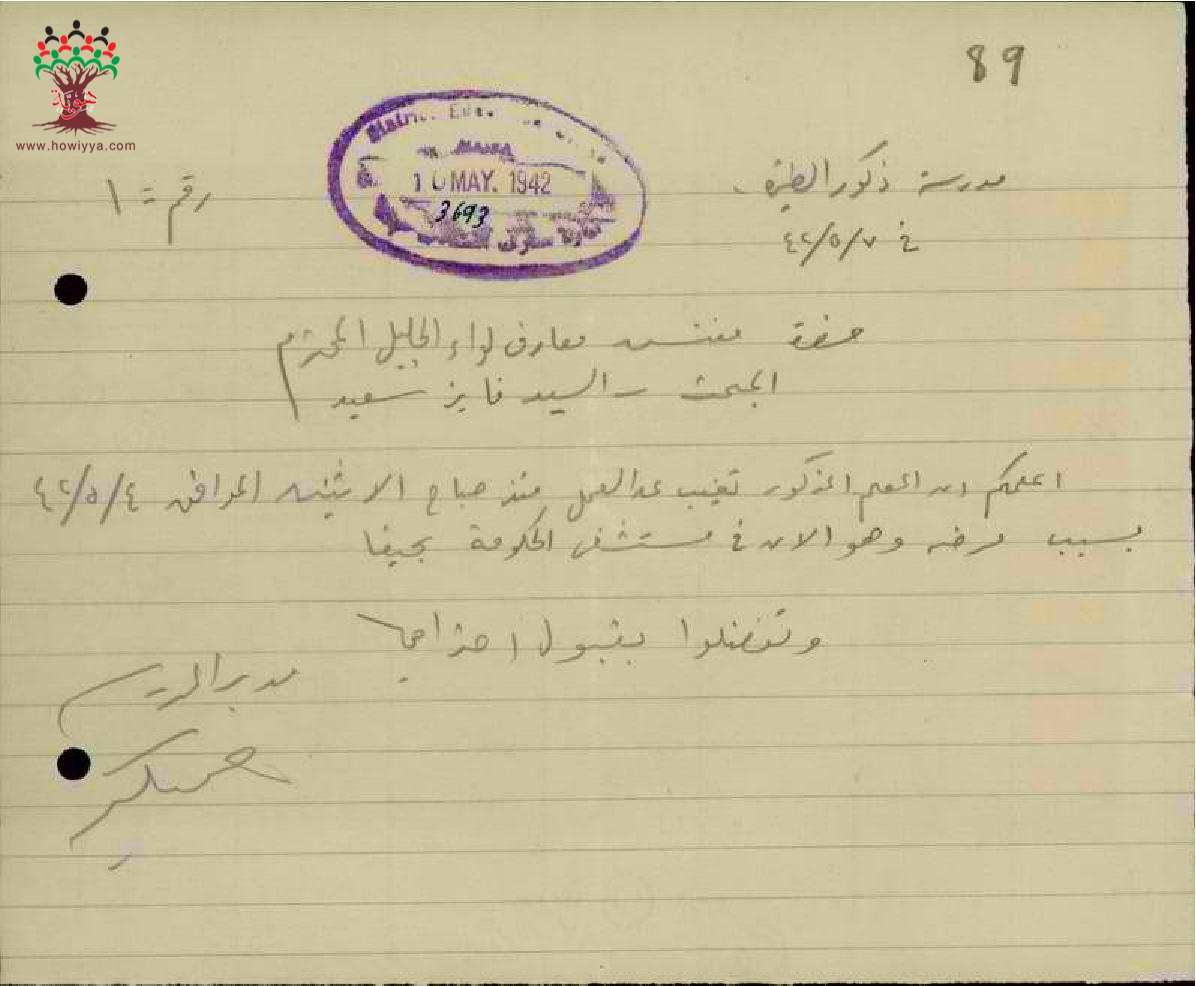 89
www.howiyya.com
District
HAIFA
10 MAY. 1942
3693
مدرسة ذكور الطيرة
رقم = ١
في ٤٢/٥/٧
حضرة مفتش معارف لواء الجليل المحترم
المبحث - السيد فايز سعيد
اعلمكم ان المعلم المذكور تغيب عن العمل منذ صباح الاثنين الموافق ٤٢/٥/٤
بسبب مرضه وهو الان في مستشفى الحكومة بحيفا
وتفضلوا بقبول احترامي
مدير المدرسة